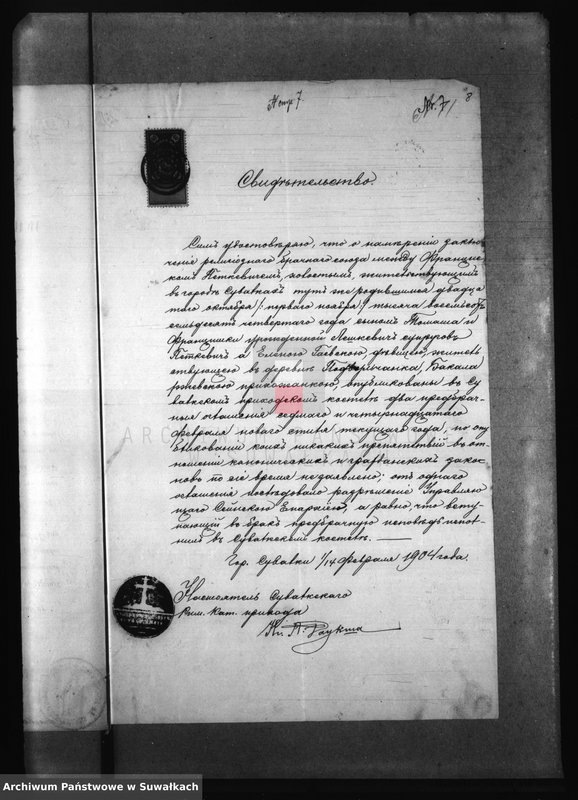 № 7 / 8
Свидѣтельство.
Симъ удостовѣряю, что о намѣреніи заклю-
ченіи религіознаго брачнаго союза между Францис-
комъ Петкевичемъ, холостымъ, жительствующимъ
въ городѣ Сувалкахъ тутъ же родившимся двадца
таго октября / перваго ноября / тысяча восемьсотъ
семьдесятъ четвертаго года сыномъ Томаша и
Францишки урожденной супруговъ
Петкевичъ а Еленою Гаевскою, дѣвицею, житель
ствующею въ деревнѣ Бакала
ржевскою прихожанкою, опубликованы въ Су
валкскомъ приходскомъ костелѣ два предбрач-
ныя оглашенія седьмаго и четырнадцатаго
февраля новаго стиля текущаго года, по опу
бликованіи коихъ никакихъ препятствій въ от-
ношеніи каноническихъ и гражданскихъ зако-
новъ по сіе время не заявлено; отъ одного
оглашенія послѣдовало разрѣшеніе Управляю
щаго Сейнскою Епархіею, а равно, что всту-
пающій въ бракъ предбрачную исповѣдь испол-
нилъ въ Сувалкскомъ костелѣ. —
Гор. Сувалки 1/14 февраля 1904 года.
Настоятель Сувалкскаго
Рим. Кат. прихода
Кс.
ARC
Archiwum Państwowe w Suwałkach